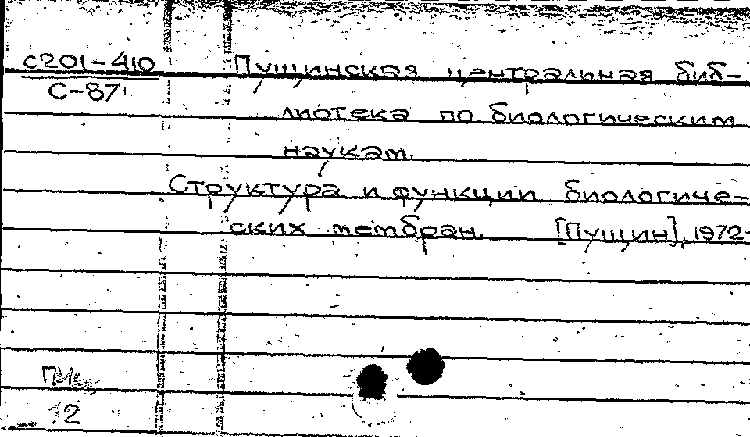 с201-410
С-87
Пущинская центральная биб-
лиотека по биологическим
наукам.
Структура и функции биологиче-
ских мембран. [Пущин], 1972-
12